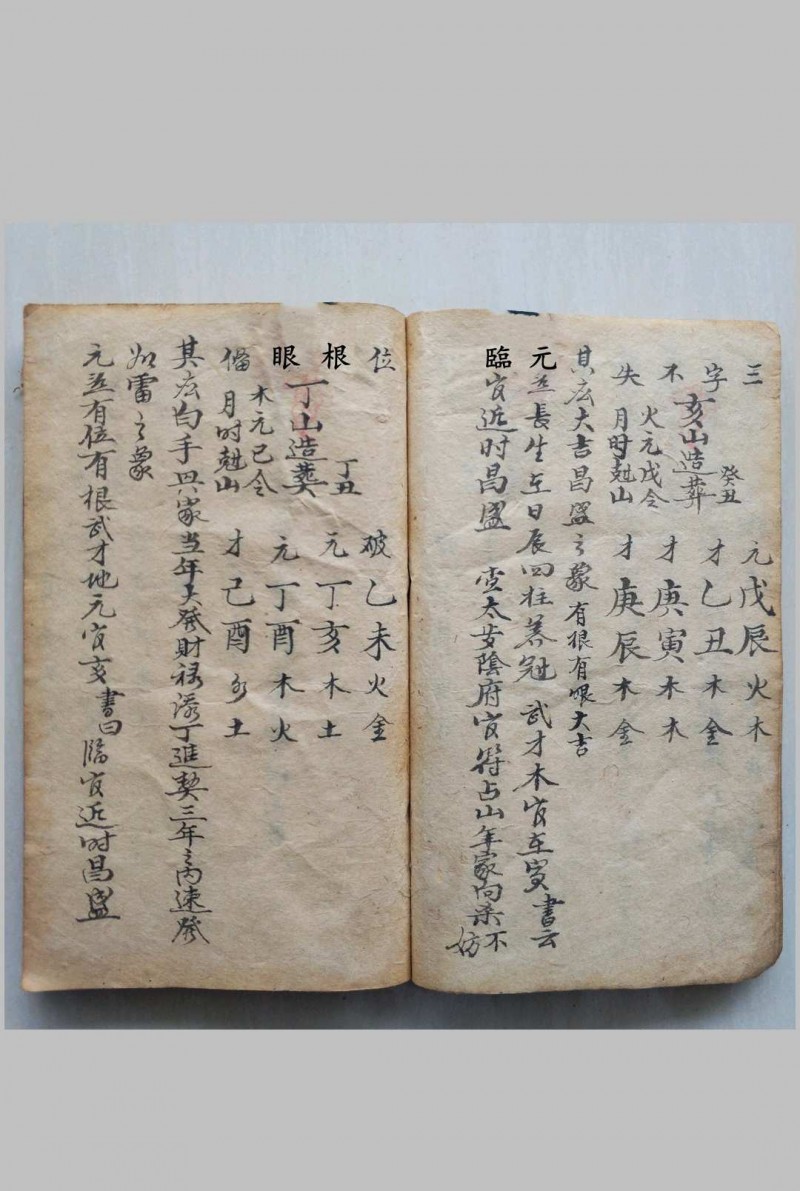 三
元戊辰火木
字
癸丑
才乙丑木金
亥山造葬
不
才庚寅木木
火元戊令
失
月时尅山
才庚辰木金
其应大吉昌盛之象有根有眼大吉
元並長生在日辰四柱蓋冠 武才木官在寅書云
臨官近时昌盛 陰府官符占山年家向杀不妨
位
破乙未火金
根
丁丑
元丁亥木土
眼
丁山造葬
元丁酉木火
木元已令
俻
月时尅山
才己酉水土
其应白手兴家当年大發財禄添丁進契三年之内速發
如雷之象
元並有位有根武才地元官亥書曰臨官近时昌盛